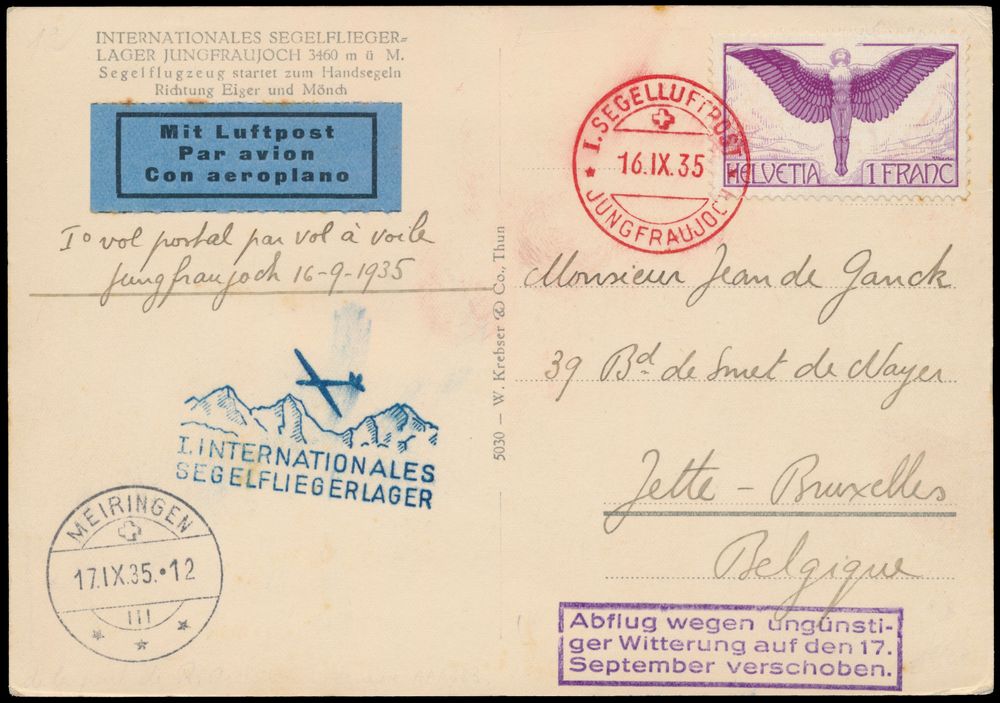 INTERNATIONALES SEGELFLIEGER=
LAGER JUNGFRAUJOCH 3460 m ü M.
Segelflugzeug startet zum Handsegeln
Richtung Eiger und Mönch
Mit Luftpost
Par avion
Con aeroplano
I° vol postal par vol à voile
Jungfraujoch 16-9-1935
I. INTERNATIONALES
SEGELFLIEGERLAGER
MEIRINGEN
17.IX.35.•12
III
5030 — W. Krebser & Co., Thun
I. SEGELLUFTPOST
16.IX.35
JUNGFRAUJOCH
HELVETIA 1 FRANC
Monsieur Jean de Ganck
39 Bd. de Smet de Nayer
Jette - Bruxelles
Belgique
Abflug wegen ungünsti-
ger Witterung auf den 17.
September verschoben.